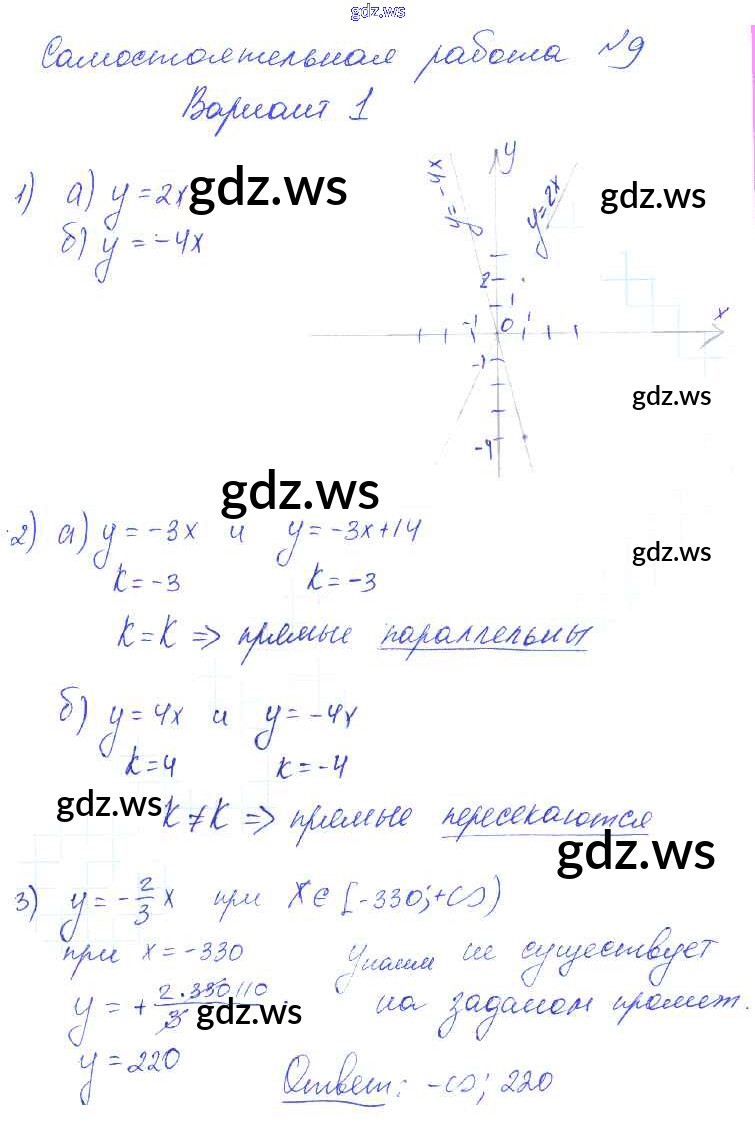 gdz.ws
Самостоятельная работа №9
Вариант 1
1) а) y = 2x gdz.ws
б) y = -4x
y = -4x
y
y = 2x
gdz.ws
2
1
-1 0 1 x
-1
-4
gdz.ws
gdz.ws
2) а) y = -3x и y = -3x+14
gdz.ws
k = -3 k = -3
k = k => прямые параллельны
б) y = 4x и y = -4x
k = 4 k = -4
gdz.ws k ≠ k => прямые пересекаются
gdz.ws
3) y = -2/3 x при x ∈ [-330; +∞)
при x = -330 Унаим не существует
y = + 2·330 110 / 3 на заданом промет.
gdz.ws
y = 220
Ответ: -∞; 220